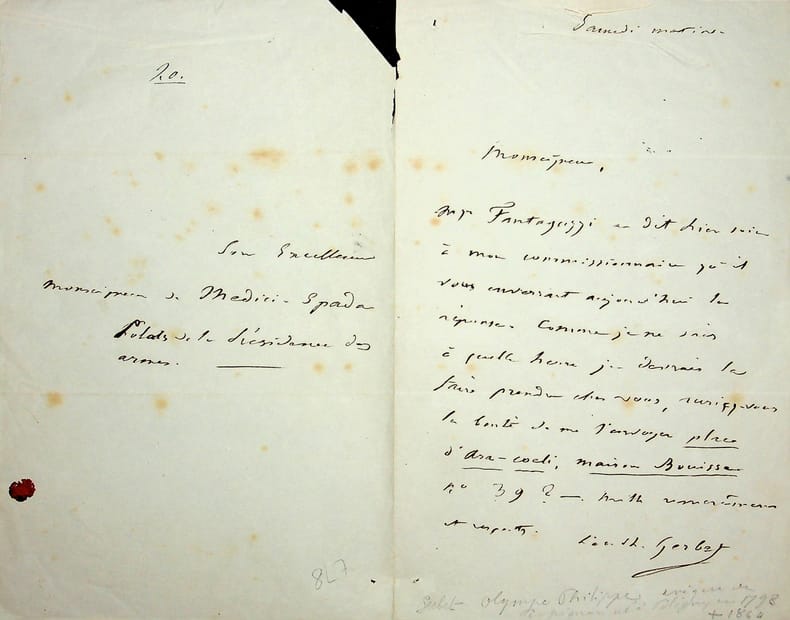 20.
Son Excellence
Monseigneur de Medici-Spada
Palais de la Présidence des
armes.
847
Samedi matin
Monseigneur,
Mgr Fantaguzzi a dit hier soir
à mon commissionnaire qu'il
vous enverrait aujourd'hui la
réponse. Comme je ne sais
à quelle heure je devrais la
faire prendre chez vous, auriez-vous
la bonté de me l'envoyer place
d'Ara-coeli, maison Bouisse
n° 39 ? — mille remerciemens
et respects.
L'ab. Ph. Gerbet
Gerbet Olympe Philippe, évêque de
Perpignan né à Poligny en 1798
+ 1864